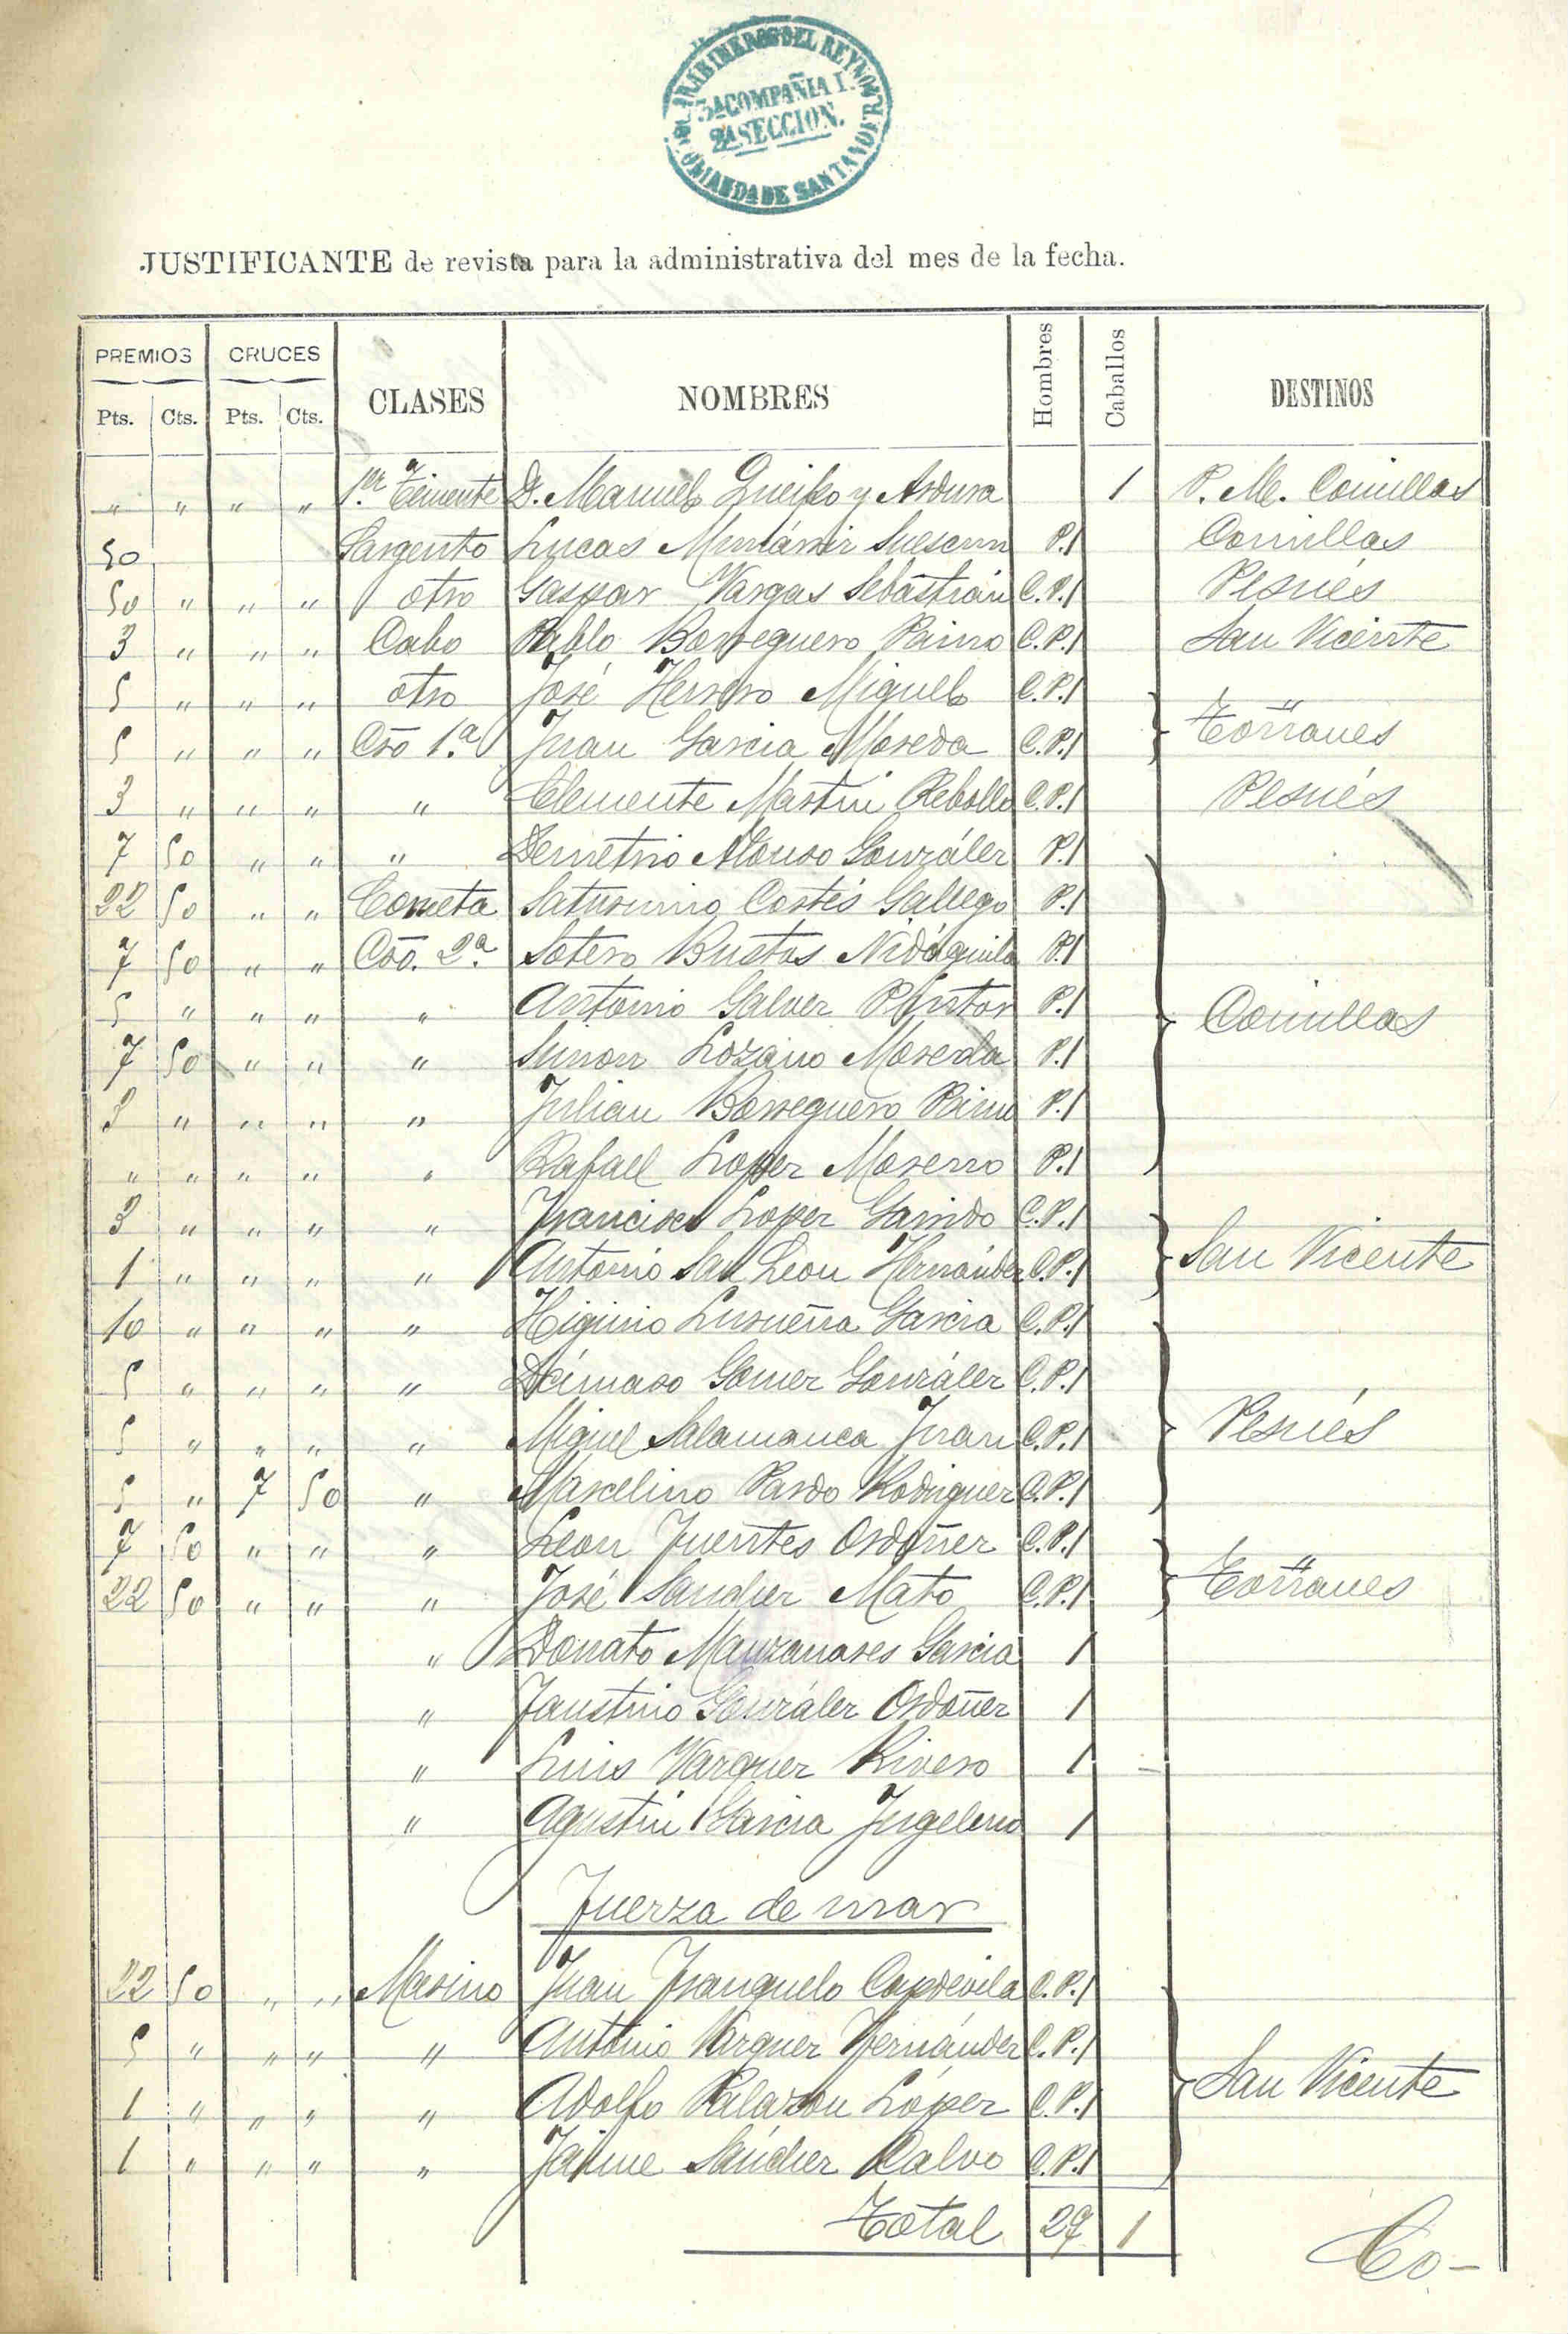 CARABINEROS DEL REYNO
3ª COMPAÑIA I.
2ª SECCION.
COMANDA DE SANTANDER
JUSTIFICANTE de revista para la administrativa del mes de la fecha.
PREMIOS CRUCES CLASES NOMBRES Hombres Caballos DESTINOS
Pts. Cts. Pts. Cts.
" " " " 1.er Teniente D. Manuel Queipo y Ardura 1 P. M. Comillas
50 Sargento Lucas Muntániz Suescun P. 1 Comillas
50 " " " otro Gaspar Vargas Sebastián C. P. 1 Pesués
3 " " " Cabo Pablo Borreguero Paino C. P. 1 San Vicente
5 " " " otro José Herrero Miguel C. P. 1
5 " " " Cro 1.ª Juan Garcia Moreda C. P. 1 Torranes
3 " " " " Clemente Martin Rebollo C. P. 1 Pesués
7 50 " " " Demetrio Alonso González P. 1
22 50 " " Corneta Saturnino Cortés Gallego P. 1
7 50 " " Cro. 2ª Sotero Bustos Nidáguila P. 1
5 " " " " Antonio Galvez Pintor P. 1 Comillas
7 50 " " " Simon Lozano Moreda P. 1
3 " " " " Julian Borreguero Paino P. 1
" " " " " Rafael Lopez Moreno P. 1
3 " " " " Francisco Lopez Garrido C. P. 1
1 " " " " Antonio San Leon Hernández C. P. 1 San Vicente
10 " " " " Higinio Lurueña Garcia C. P. 1
5 " " " " Dámaso Gomez González C. P. 1
5 " " " " Miguel Salamanca Juan C. P. 1 Pesués
5 " 7 50 " Marcelino Pardo Rodriguez C. P. 1
7 50 " " " Leon Fuentes Ordoñez C. P. 1
22 50 " " " José Sanchez Mato C. P. 1 Torranes
" Donato Manzanares Garcia 1
" Faustino González Ordoñez 1
" Luis Vazquez Rivero 1
" Agustin Garcia 1
Fuerza de mar
22 50 " " Marino Juan Franquelo Capdevila C. P. 1
5 " " " " Antonio Vazquez Hernández C. P. 1
1 " " " " Adolfo Palazon López C. P. 1 San Vicente
1 " " " " Jaime Sánchez Calvo C. P. 1
Total 29 1
Co-